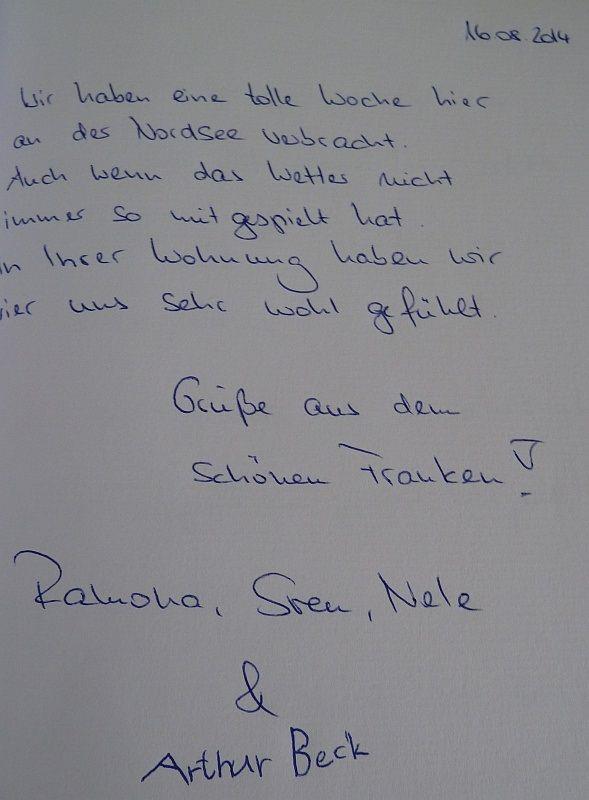 16.08.2014
Wir haben eine tolle Woche hier
an der Nordsee verbracht.
Auch wenn das Wetter nicht
immer so mitgespielt hat.
in Ihrer Wohnung haben wir
hier uns sehr wohl gefühlt.
Grüße aus dem
schönen Franken!
Ramona, Sven, Nele
&
Arthur Beck